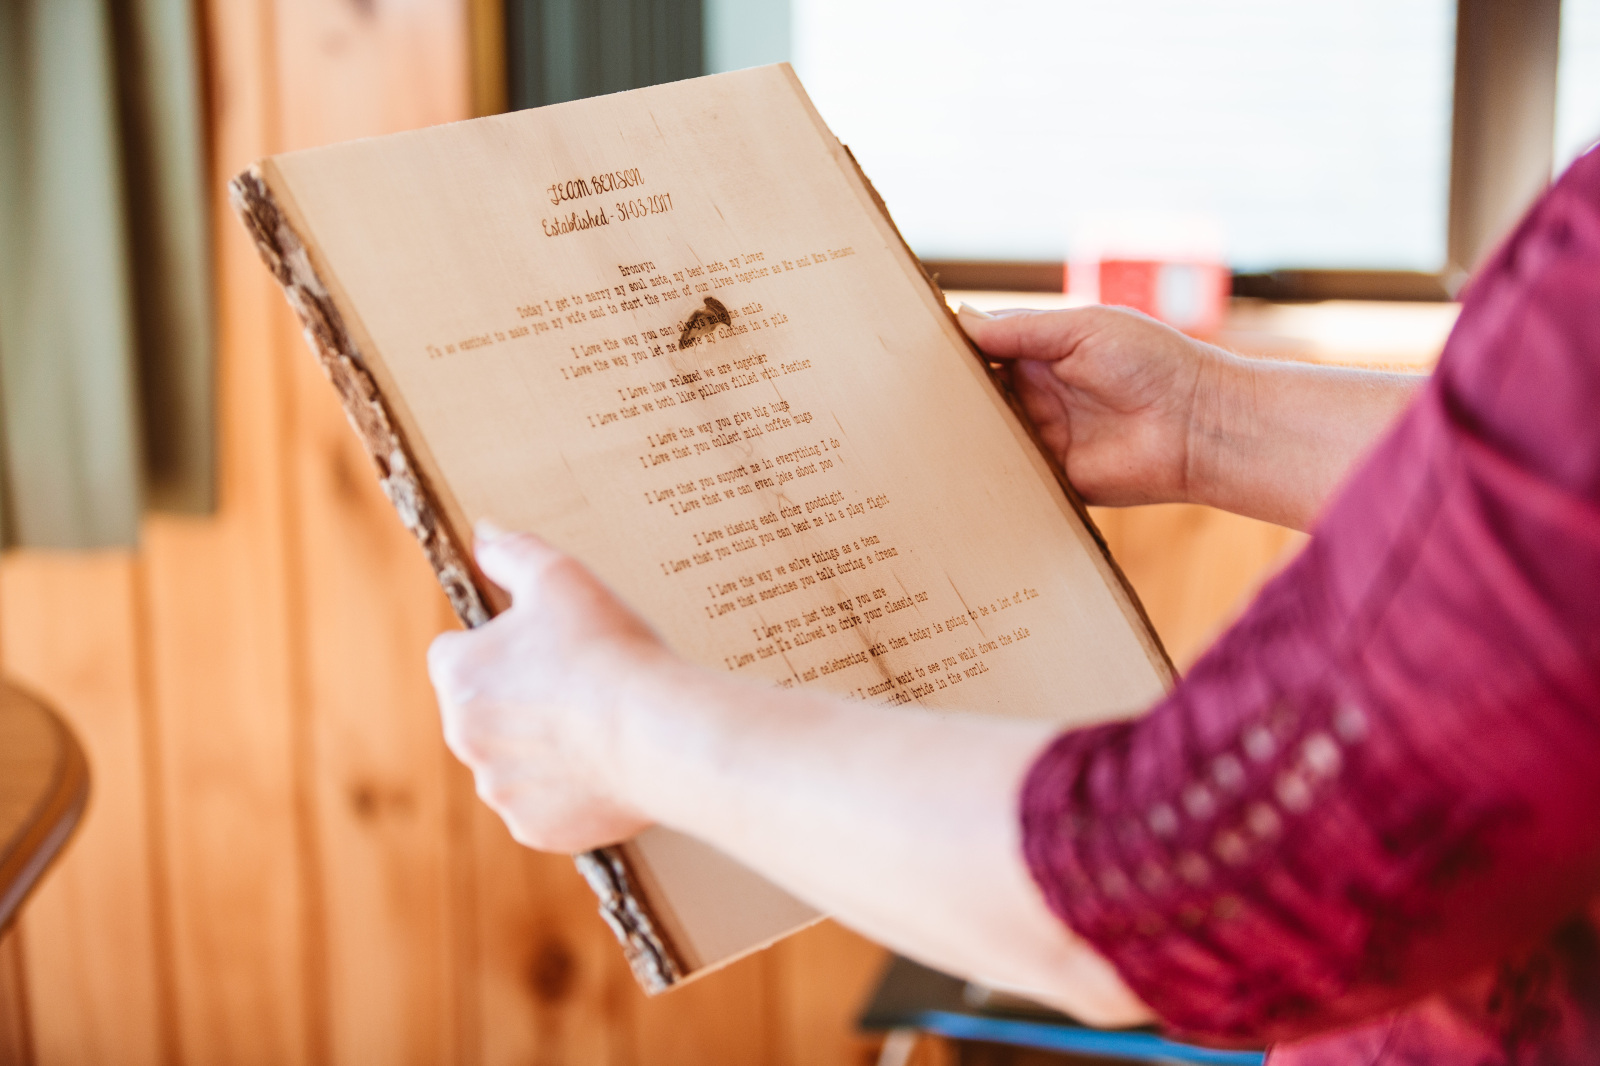 TEAM BENSON
Established - 31-03-2017
Bronwyn
Today I get to marry my soul mate, my best mate, my lover
I'm so excited to make you my wife and to start the rest of our lives together as Mr and Mrs Benson
I Love the way you can always make me smile
I Love the way you let me leave my clothes in a pile
I Love how relaxed we are together
I Love that we both like pillows filled with feather
I Love the way you give big hugs
I Love that you collect mini coffee mugs
I Love that you support me in everything I do
I Love that we can even joke about poo
I Love kissing each other goodnight
I Love that you think you can beat me in a play fight
I Love the way we solve things as a team
I Love that sometimes you talk during a dream
I Love you just the way you are
I Love that I'm allowed to drive your classic car
and celebrating with them today is going to be a lot of fun
I cannot wait to see you walk down the isle
bride in the world.